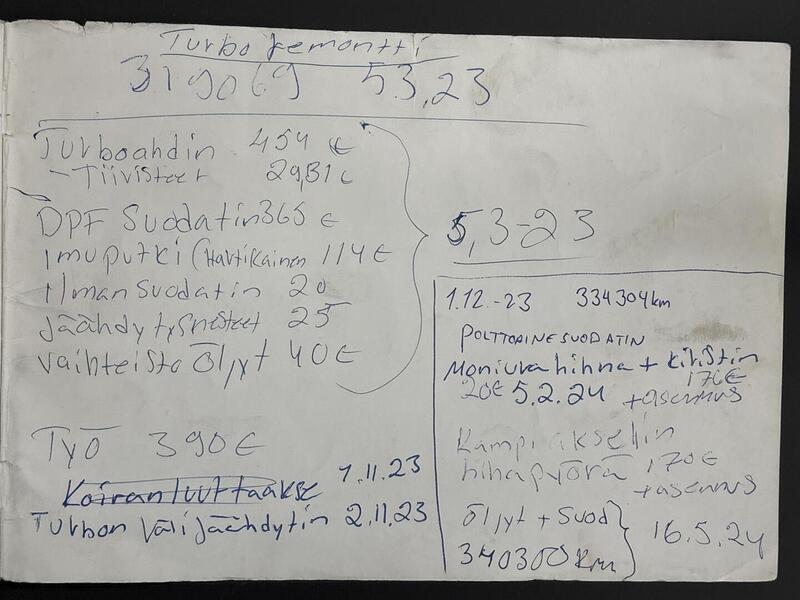 Turbo remontti
319069 5.3.23
Turboahdin 454 €
- Tiivisteet 29,81 €
DPF Suodatin 365 €
imuputki (Hartikainen 114 €
ilman suodatin 20
jäähdytysnesteet 25
vaihteisto Öljyt 40 €
5,3-23
Työ 390 €
1.11.23
Turbon välijäähdytin 2.11.23
1.12.-23 334304 km
POLTTOAINESUODATIN
Moniurahihna + kiristin
20€ 5.2.24 170€
+ asennus
Kampiakselin
hihapyörä 170€
+ asennus
Öljyt + Suod
340300 Km
16.5.24